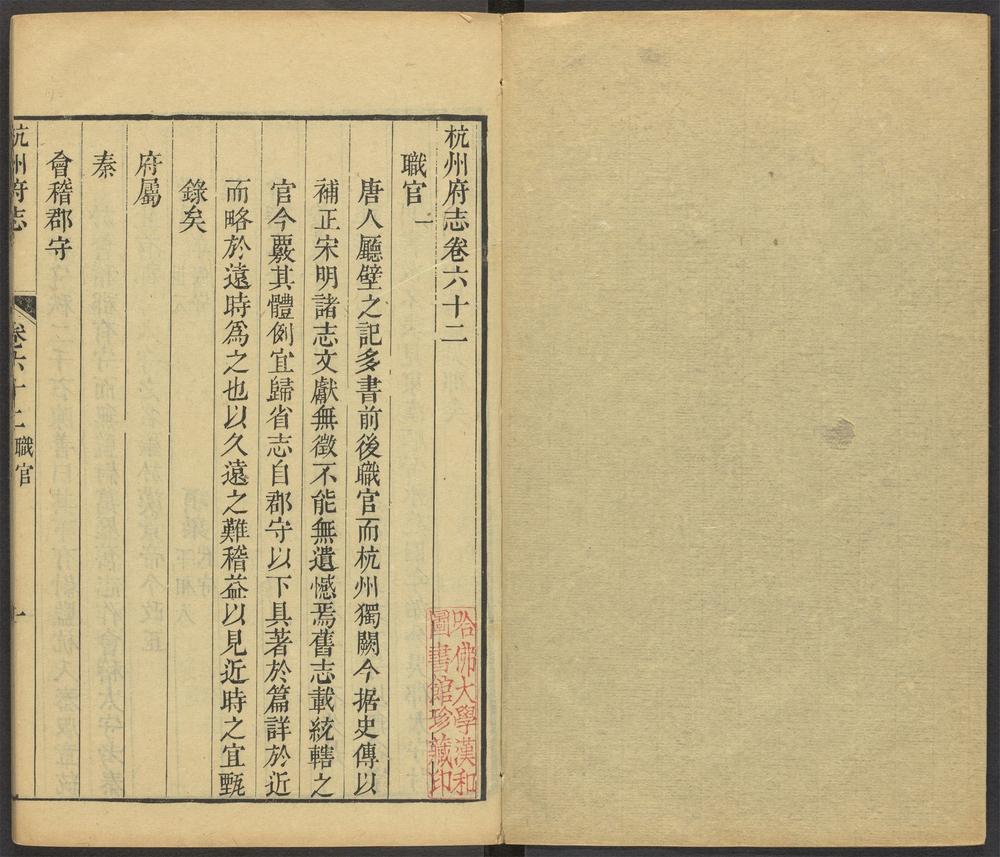 杭州府志卷六十二
職官一
唐人廳壁之記多書前後職官而杭州獨闕今据史傳以
補正宋明諸志文獻無徵不能無遺憾焉舊志載統轄之
官今覈其體例宜歸省志自郡守以下具著於篇詳於近
而略於遠時爲之也以久遠之難稽益以見近時之宜甄
錄矣
府屬
秦
會稽郡守
杭州府志 卷六十二職官 一
哈佛大學漢和
圖書館珍藏印